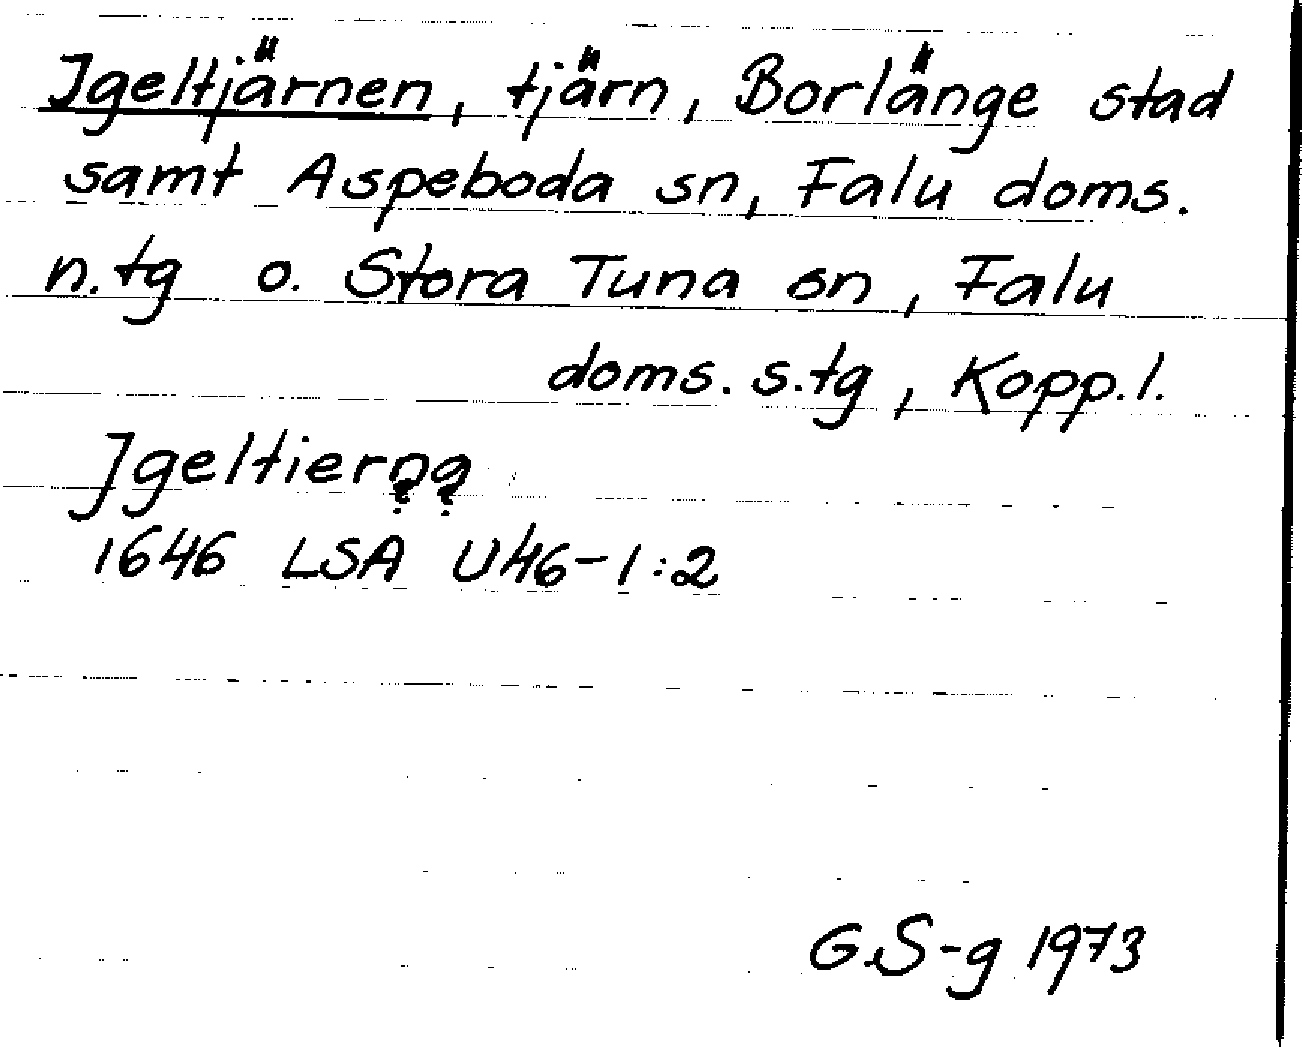 Igeltjärnen, tjärn, Borlänge stad
samt Aspeboda sn, Falu doms.
n.tg o. Stora Tuna sn, Falu
doms. s.tg, Kopp.l.
Igeltierna
1646 LSA U46-1:2
G.S-g 1973